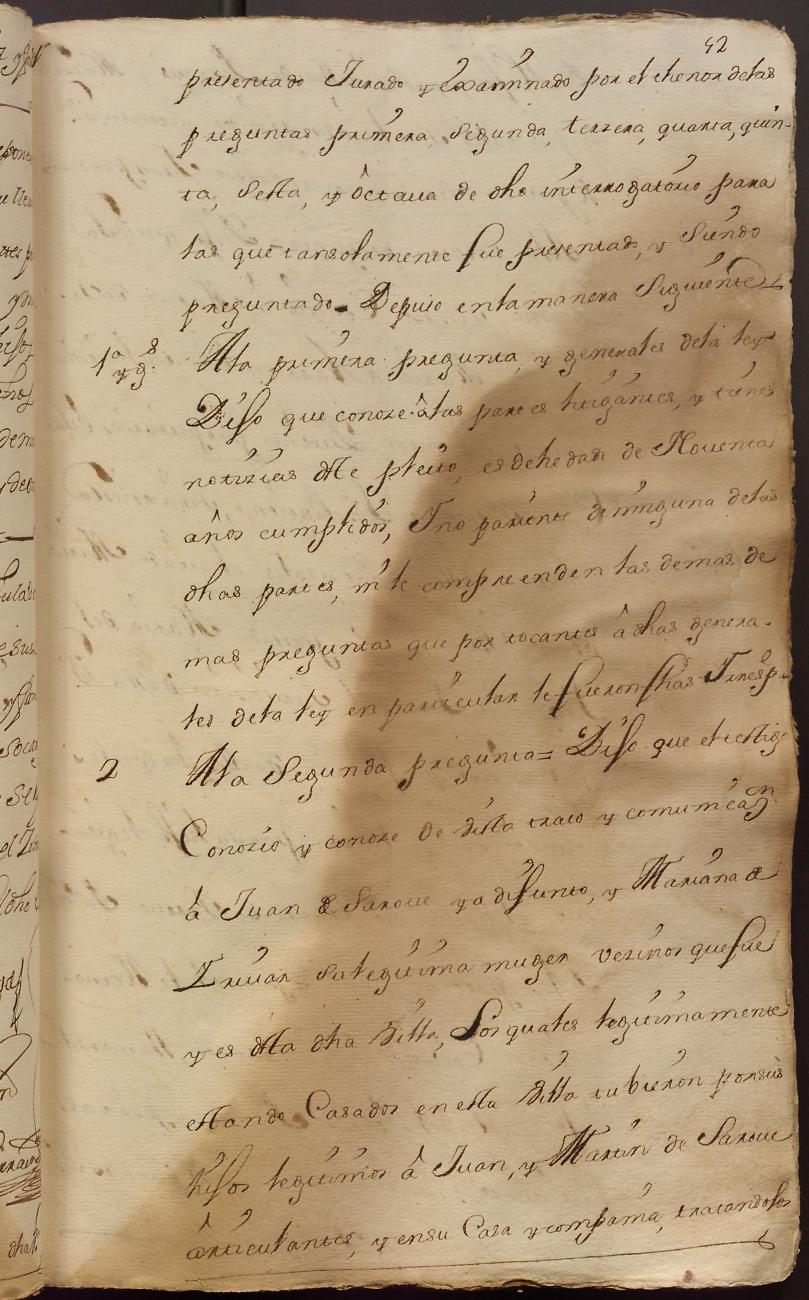 42
presentado Jurado y Examinado por el thenor delas
preguntas primera segunda, terzera, quarta, quin-
ta, sesta, y octaua de dho interrogatorio para
las que tansolamente fue presentado, y siendo
preguntado = Depuso enlamanera siguiente
1ª y gs. Ala primera pregunta, y generales dela ley
Dijo que conoze âlas partes litigantes, y tiene
notizias dste pleito, es dehedad de Nouenta
años cumplidos, I no pariente de ninguna delas
dhas partes, ni le compreenden las demas de
mas preguntas que por tocantes â dhas genera-
les dela ley en particular le fueron fhas I resp.
2 Ala Segunda pregunta = Dijo que el testigo
Conozio y conoze de vista trato y comunicaon
â Juan de Saroue ya difunto, y Mariana de
Iruuar su legitima muger vezinos que fue
y es dsta dha Villa, Los quales legitimamente
estando Casados en esta Villa tubieron por sus
hijos legitimos â Juan, y Martin de Saroue
articulantes, y ensu Casa y compañia, tratandolos